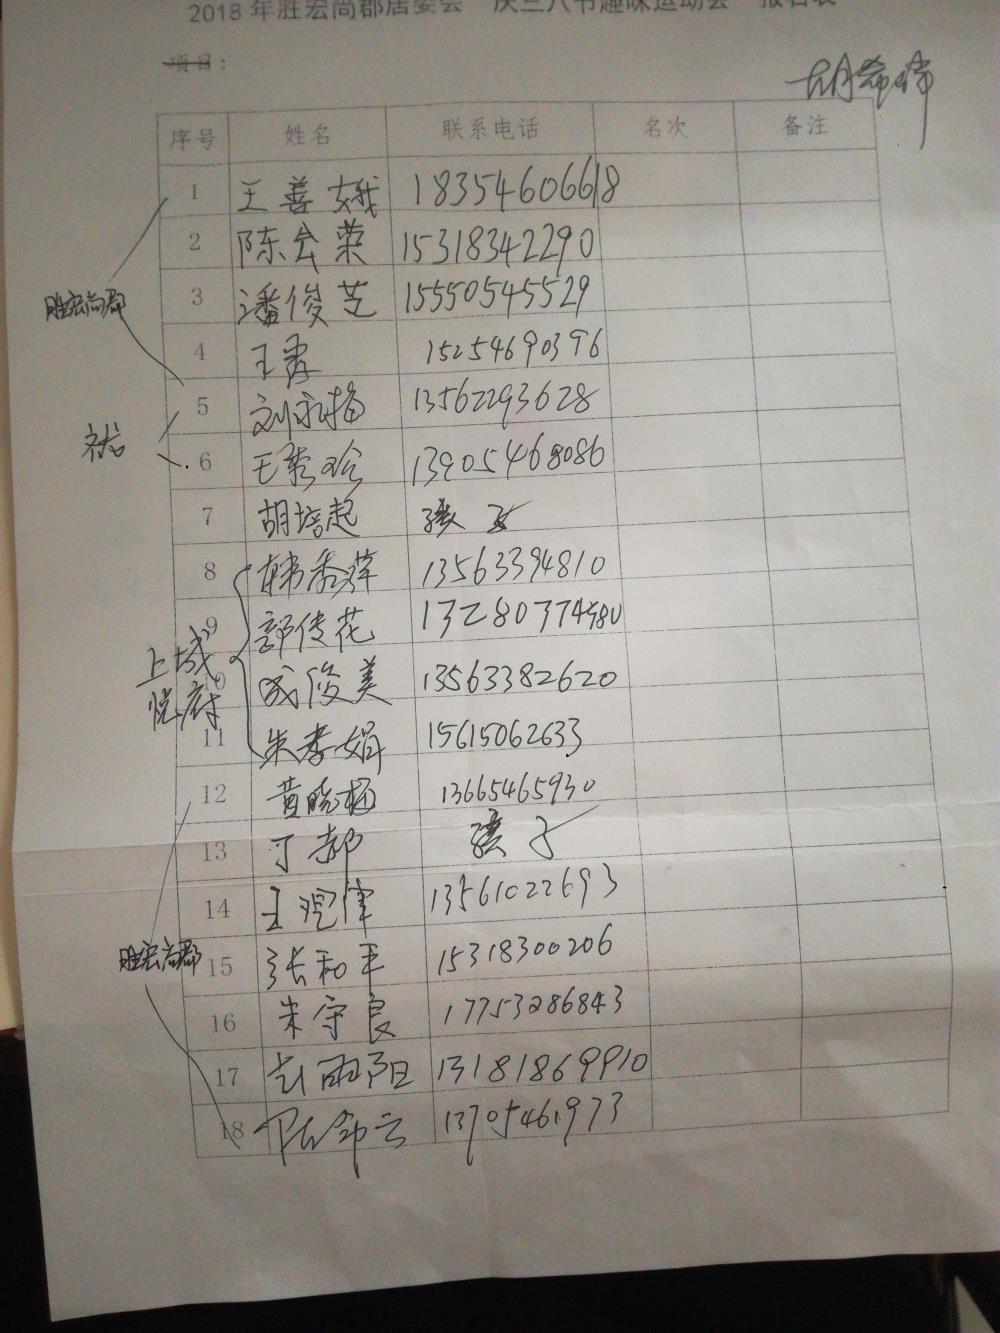 2018年胜宏尚郡居委会“庆三八节趣味运动会”报名表
项目：
胡希瑞
序号 姓名 联系电话 名次 备注
1 王善娥 18354606618
2 陈会荣 15318342290
3 潘俊芝 15550545529
胜宏尚郡
4 王霞 15254690396
5 刘永梅 13562293628
6 王秀玲 13905468086
7 胡培起 孩子
8 韩秀萍 13563394810
9 郭传花 13280374580
上城悦府
10 成俊美 13563382620
11 朱孝娟 15615062633
12 黄晓梅 13665465930
13 丁郝 孩子
14 王观津 13561022693
胜宏尚郡
15 张和平 15318300206
16 朱守良 17753286843
17 彭雨阳 13181869910
18 13705461973